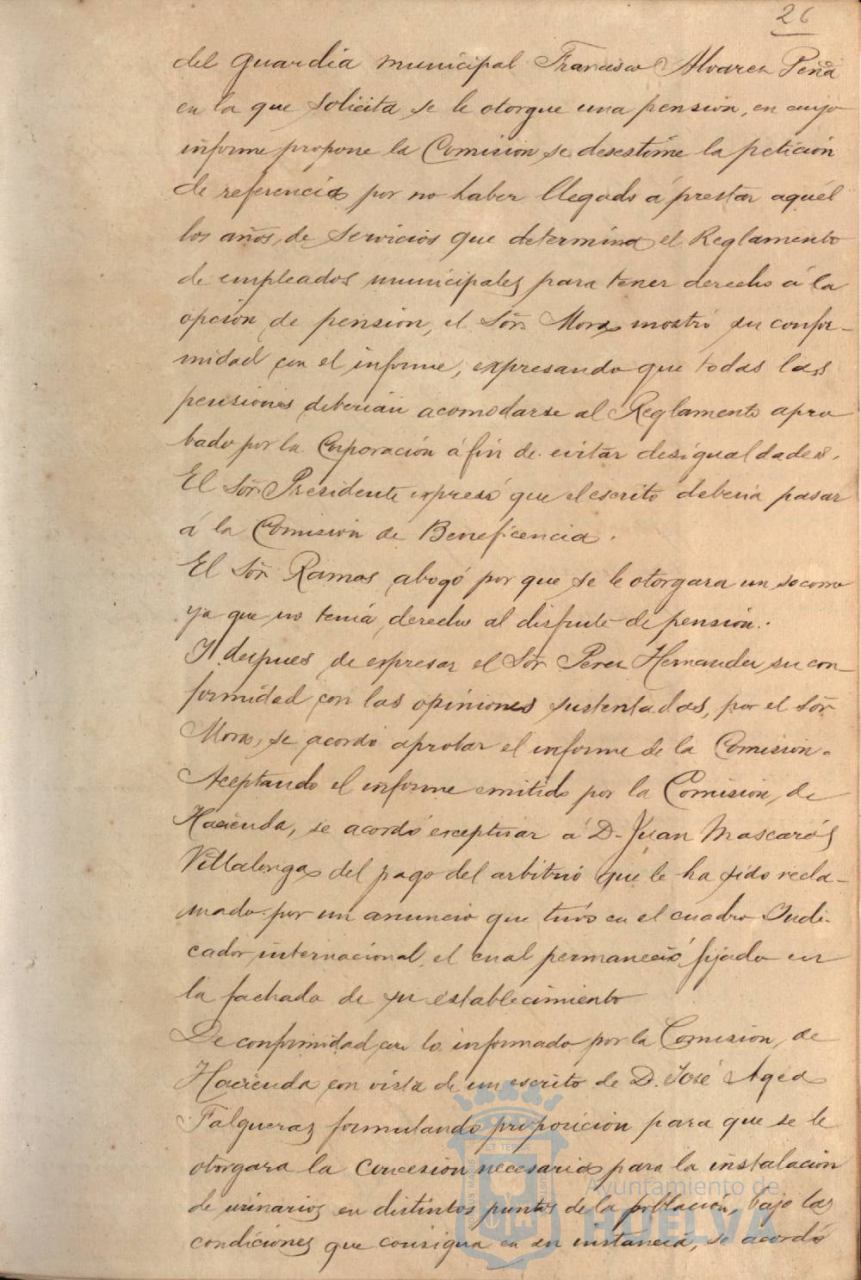 26
del guardia municipal Francisco Alvarez Peña
en la que solicita se le otorgue una pensión, en cuyo
informe propone la Comision se desestime la petición
de referencia por no haber llegado á prestar aquél
los años de servicios que determina el Reglamento
de empleados municipales para tener derecho á la
opción de pensión, el Sor. Mora mostró su confor-
midad con el informe, expresando que todas las
pensiones deberian acomodarse al Reglamento apro
bado por la Corporación á fin de evitar desigualdades.
El Sor. Presidente expresó que el escrito debería pasar
á la Comisión de Beneficencia.
El Sor. Ramos abogó por que se le otorgara un socorro
ya que no tenia derecho al disfrute de pensión.
Y despues de expresar el Sor. Perez Hernandez su con-
formidad con las opiniones sustentadas, por el Sor.
Mora, se acordó aprobar el informe de la Comision.
Aceptando el informe emitido por la Comision de
Hacienda, se acordó exceptuar á D. Juan Mascarós
Villalonga del pago del arbitrio que le ha sido recla-
mado por un anuncio que tuvo en el cuadro Indi-
cador internacional el cual permaneció fijado en
la fachada de su establecimiento
De conformidad con lo informado por la Comision de
Hacienda con vista de un escrito de D. José Agea
Falgueras formulando proposición para que se le
otorgara la concesión necesaria para la instalación
de urinarios en distintos puntos de la población, bajo las
condiciones que consigna en su instancia, se acordó
Ayuntamiento de
HUELVA